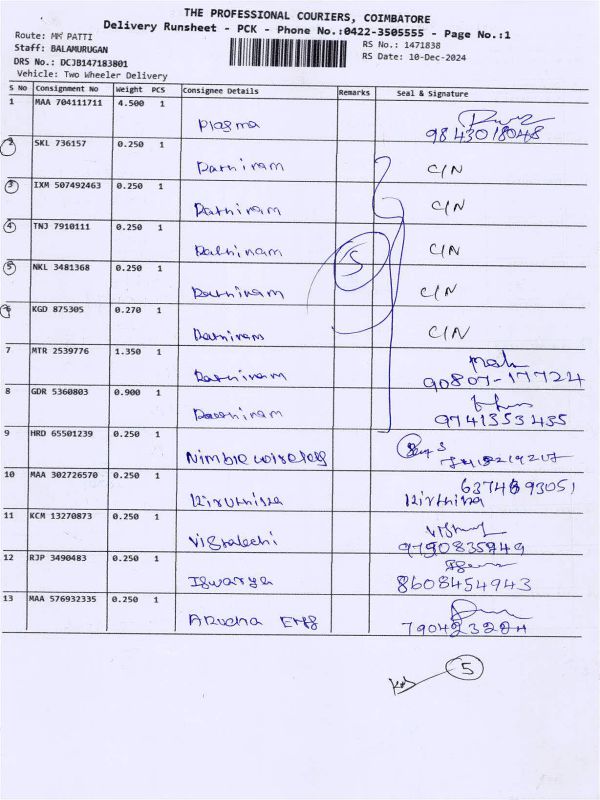 THE PROFESSIONAL COURIERS, COIMBATORE
Delivery Runsheet - PCK - Phone No.:0422-3505555 - Page No.:1
Route: MM PATTI
RS No.: 1471838
Staff: BALAMURUGAN
RS Date: 10-Dec-2024
DRS No.: DCJB147183801
Vehicle: Two Wheeler Delivery
S No Consignment No Weight PCS Consignee Details Remarks Seal & Signature
1 MAA 704111711 4.500 1 Plasma 9843018048
2 SKL 736157 0.250 1 Rathinam C/N
3 IXM 507492463 0.250 1 Rathinam C/N
4 TNJ 7910111 0.250 1 Rathinam C/N
5 NKL 3481368 0.250 1 Rathinam C/N
5
6 KGD 875305 0.270 1 Rathinam C/N
7 MTR 2539776 1.350 1 Rathinam 90807-17724
8 GDR 5360803 0.900 1 Rathinam 9741353435
9 HRD 65501239 0.250 1 Nimble wireless
10 MAA 302726570 0.250 1 Kiruthisa 6374893051 Kirthisa
11 KCM 13270873 0.250 1 9790835949
12 RJP 3490483 0.250 1 Iswarya 8608454943
13 MAA 576932335 0.250 1
5